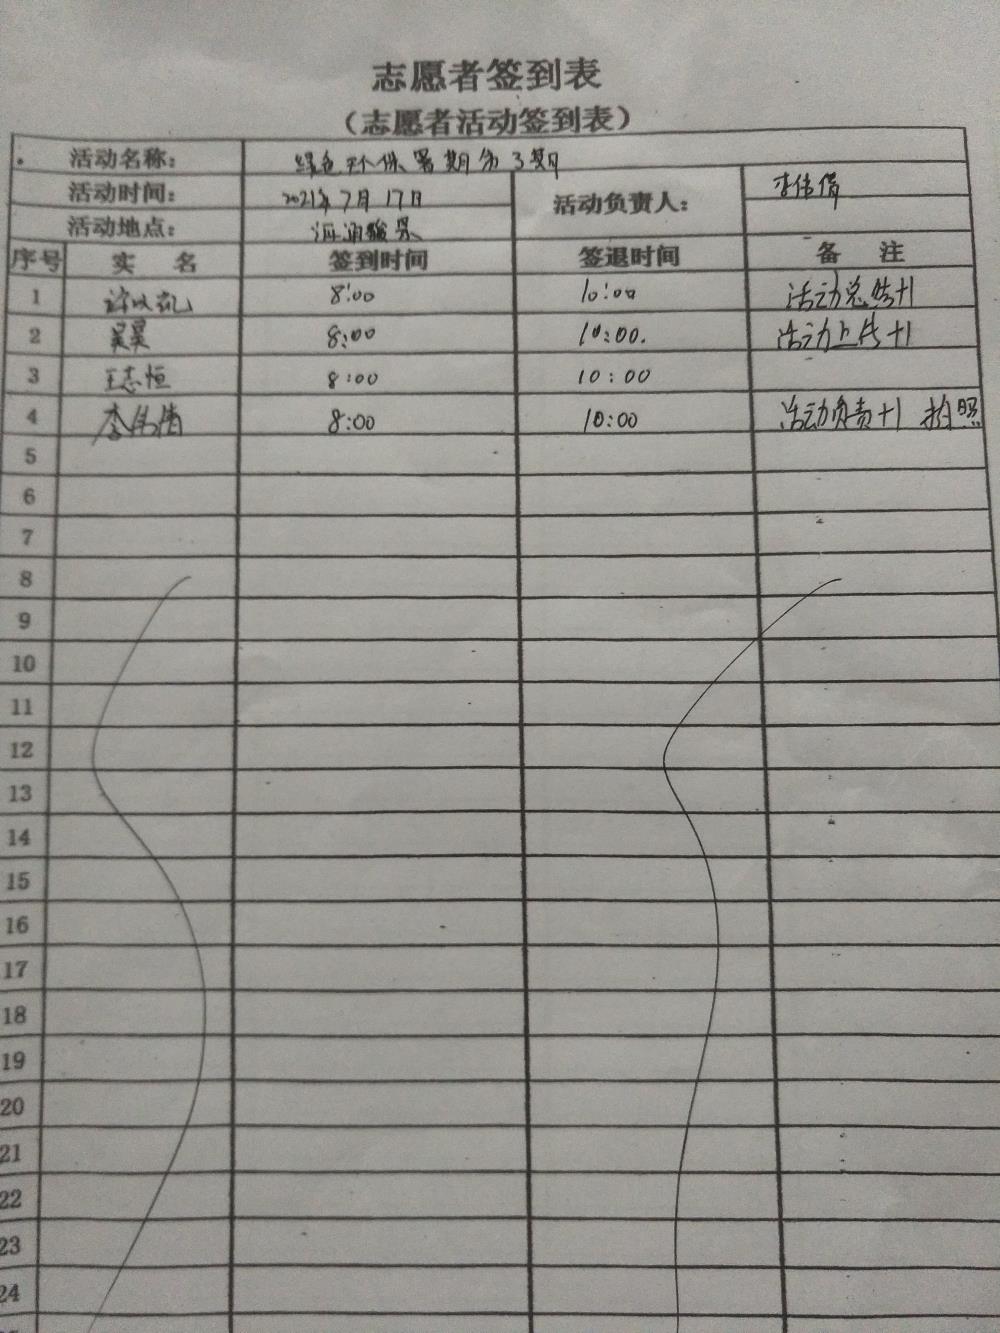 志愿者签到表
（志愿者活动签到表）
活动名称： 绿色环保暑期第3期
活动时间： 2021年7月17日 活动负责人： 李伟倩
活动地点： 海润骏景
序号 实 名 签到时间 签退时间 备 注
1 8:00 10:00 活动总结+1
2 吴昊 8:00 10:00. 活动上传+1
3 王志恒 8:00 10:00
4 李伟倩 8:00 10:00 活动负责+1 拍照
5
6
7
8
9
10
11
12
13
14
15
16
17
18
19
20
21
22
23
24